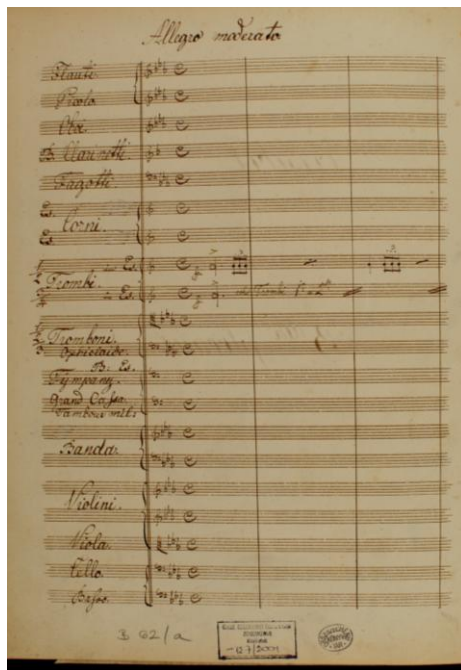 Allegro moderato
Flauti.
Picolo.
Oboi.
B. Clarinetti.
Fagotti.
Es.
Corni.
Es.
Es.
Trombi.
Es.
Tromboni.
Ophicleide.
B. Es.
Tympany.
Grand Cassa.
Tambour milt:
Banda.
Violini.
Viola.
Cello.
Basso.
B 62/a